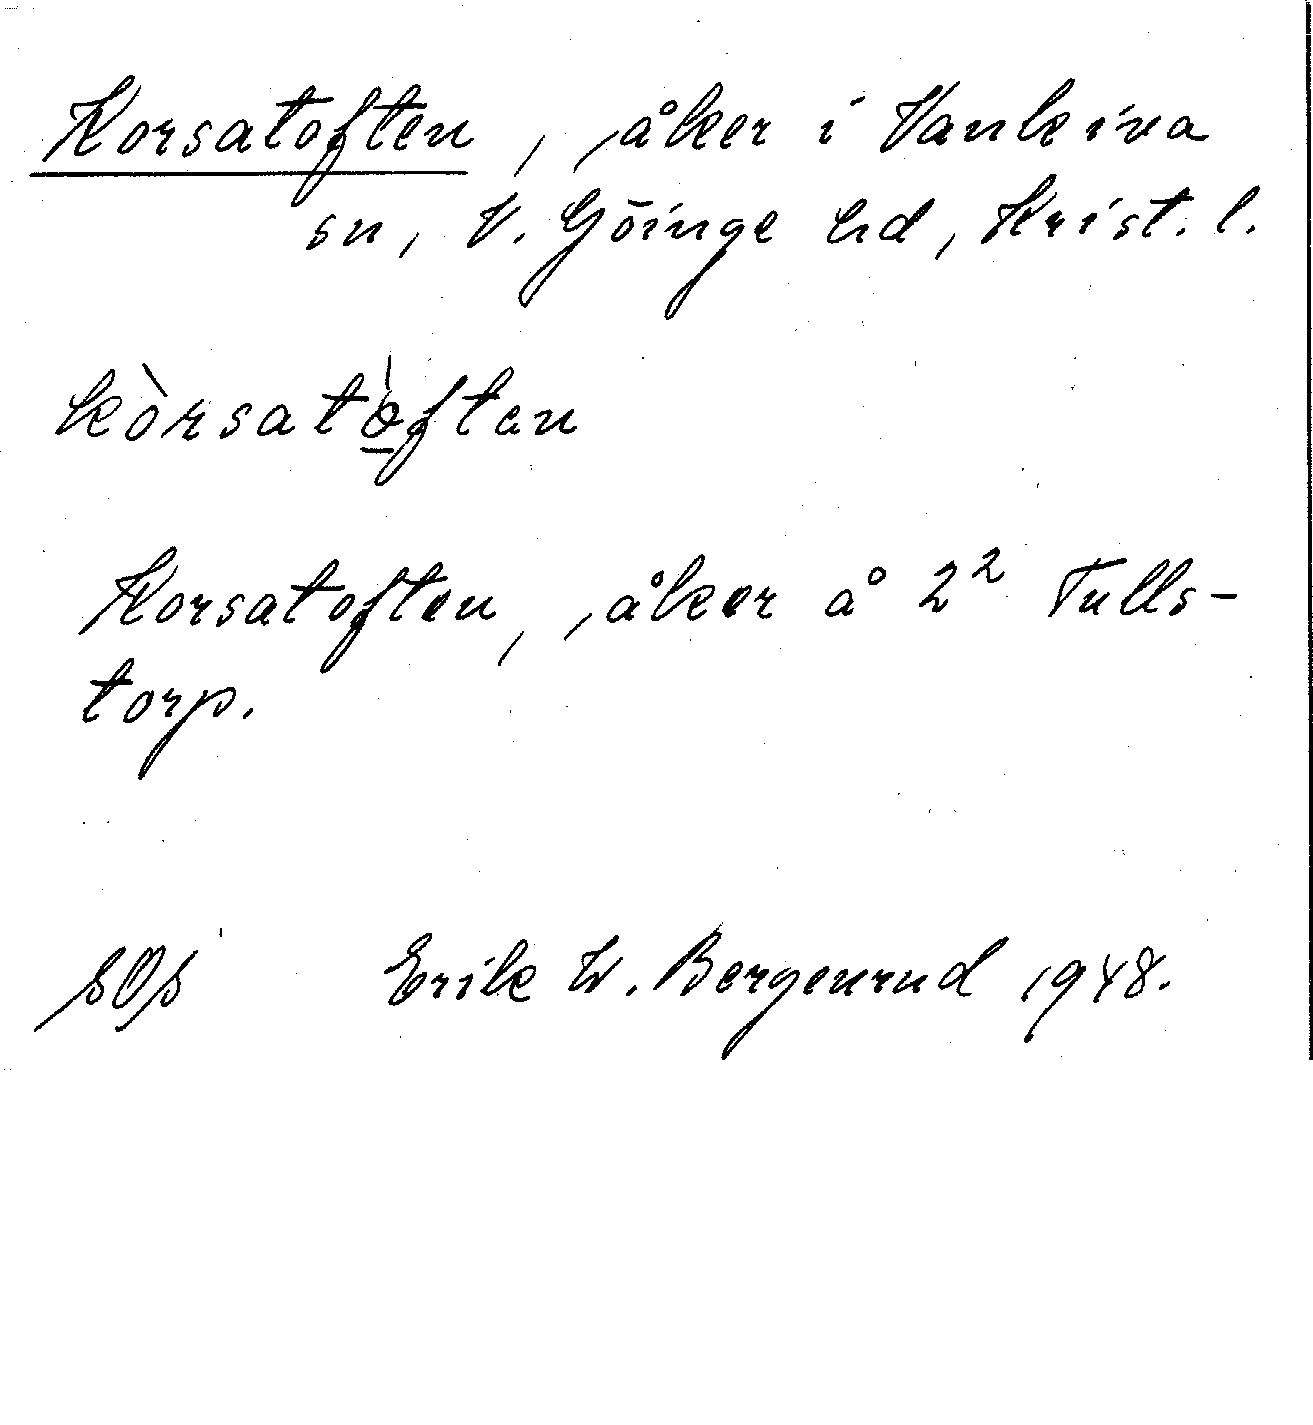 Korsatoften, åker i Vankiva
sn, V. Göinge hd, Krist. l.
kòrsatò̱ften
Korsatoften, åker å 2² Tulls-
torp.
SOS Erik W. Bergenrud 1948.